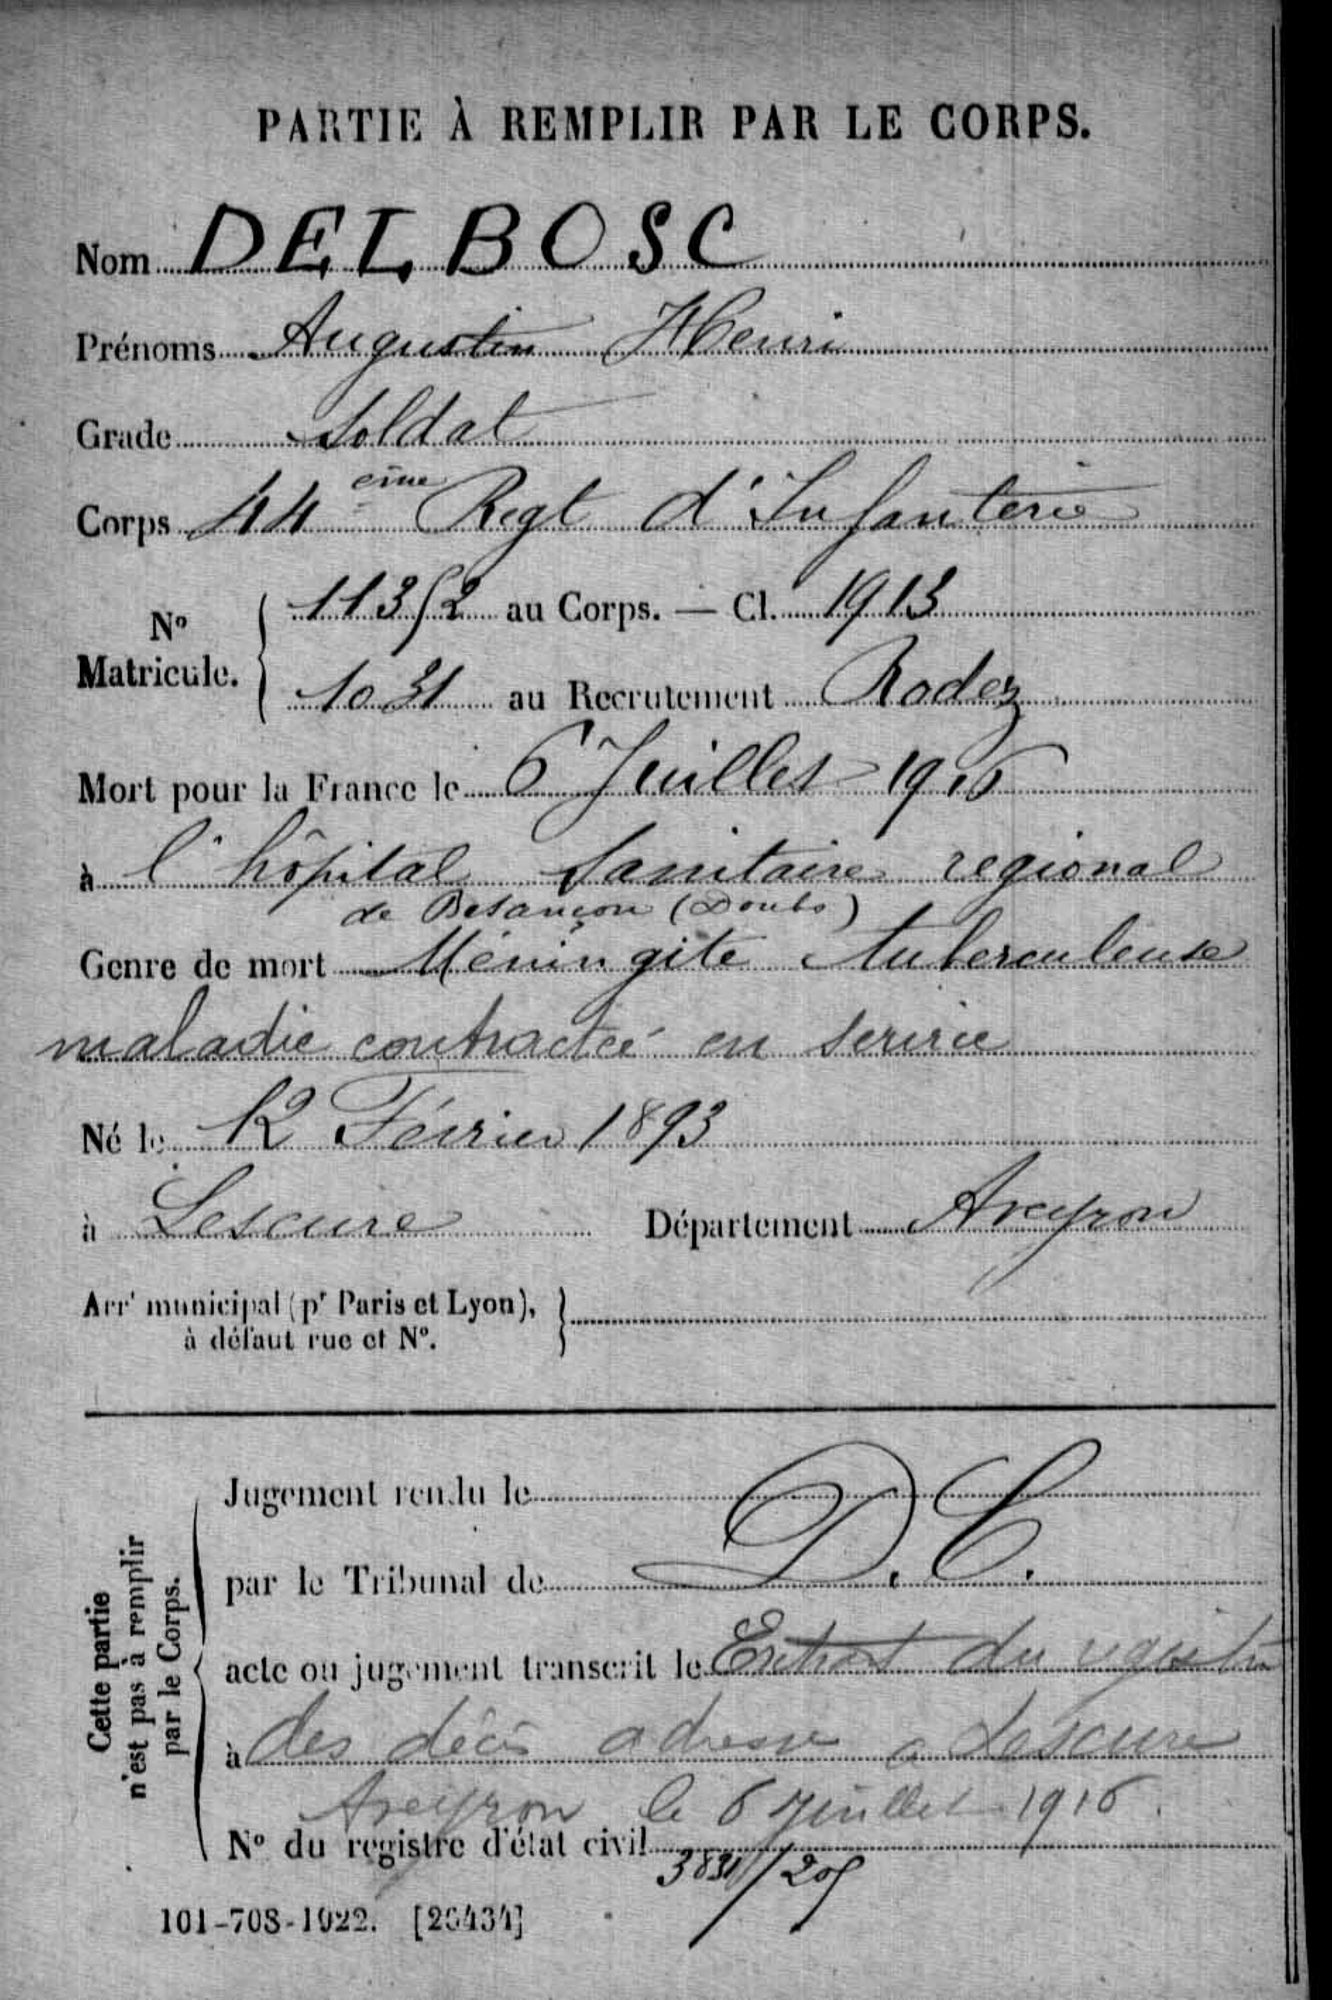 PARTIE À REMPLIR PAR LE CORPS.
Nom DELBOSC
Prénoms Augustin Henri
Grade Soldat
Corps 44 eme Regt d'Infanterie
No Matricule. 11352 au Corps. — Cl. 1913
1031 au Recrutement Rodez
Mort pour la France le 6 Juillet 1916
à l'hôpital Sanitaire regional
de Besançon (Doubs)
Genre de mort Méningite tuberculeuse
maladie contractée en service
Né le 12 Février 1893
à Lescure Département Aveyron
Arrt municipal (pr Paris et Lyon),
à défaut rue et No.
Cette partie
n'est pas à remplir
par le Corps.
Jugement rendu le
par le Tribunal de D.C.
acte ou jugement transcrit le Extrait du registre
à des décès adressé a Lescure
Aveyron le 6 Juillet 1916.
No du registre d'état civil
3831/205
101-708-1922. [26434]